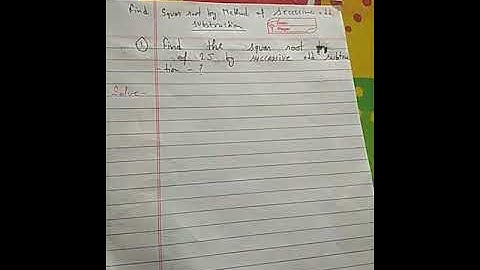 find Squar root by Method of Seccessive odd
substraction
① find the squar root
of 25 by successive odd subtra
-tion - ?
Solve -